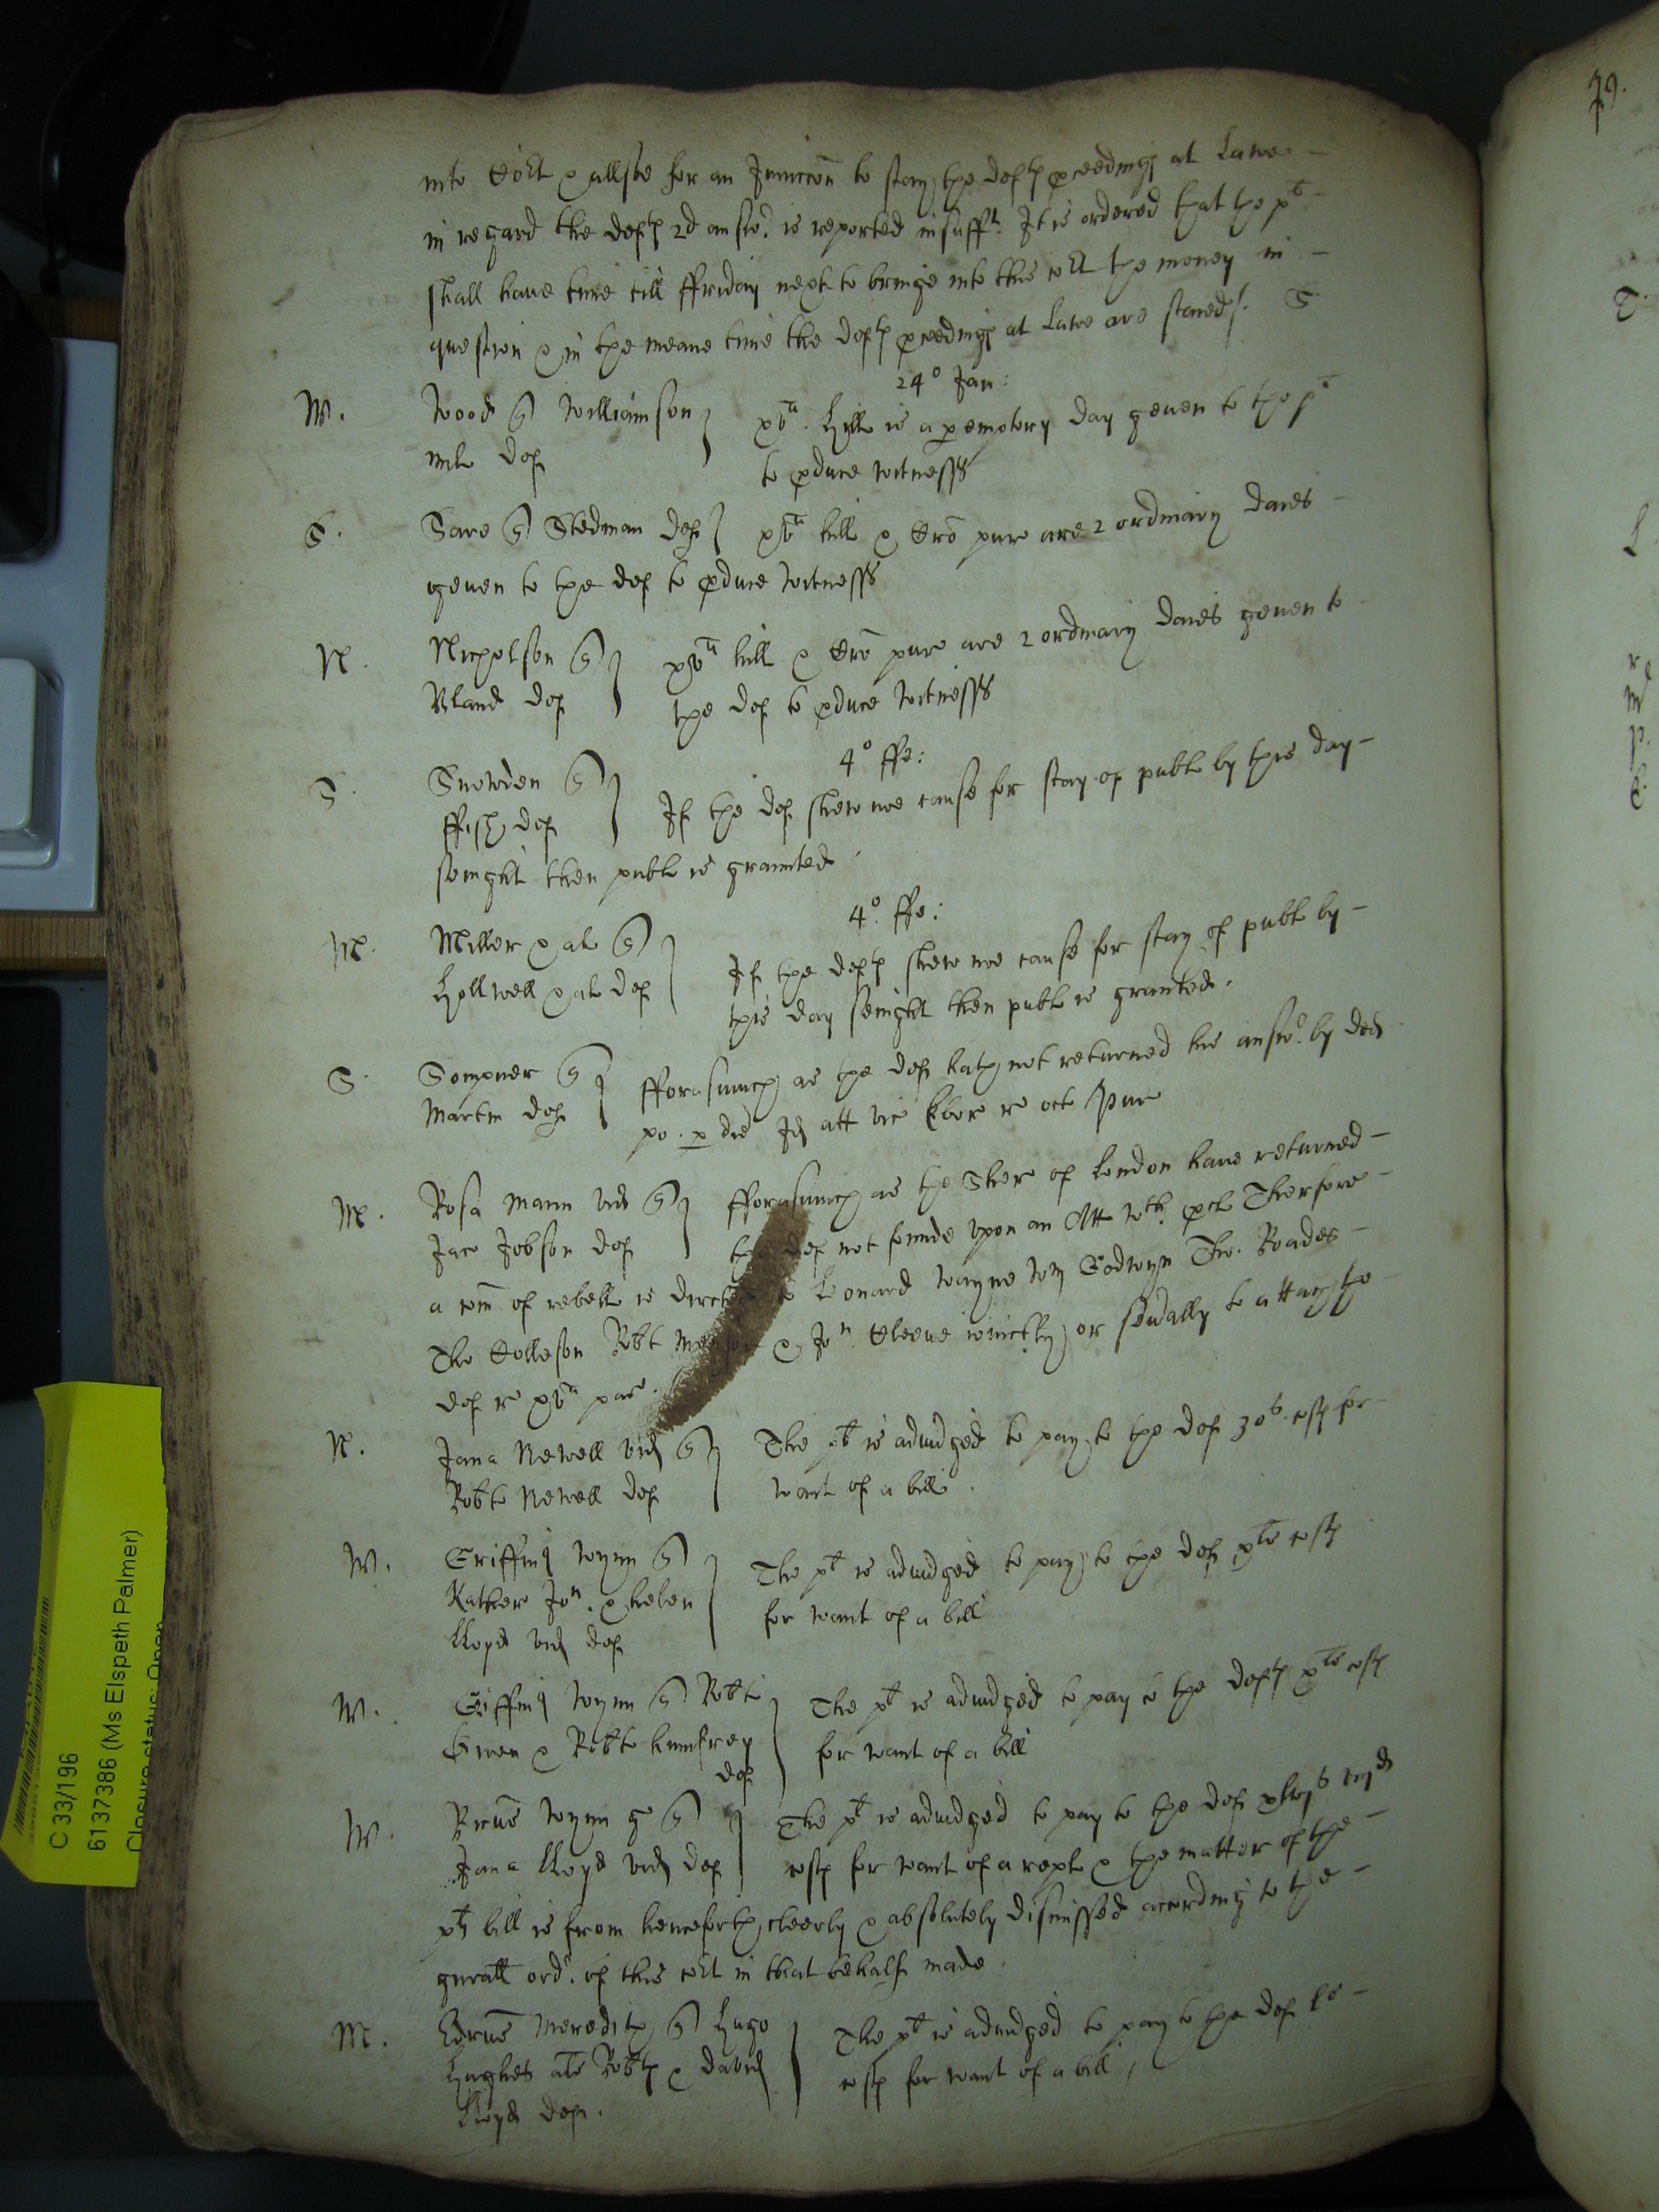 into Co:rt & allsoe for an Iniuncc̃on to stay the def:ts p̱ceedings at lawe
in regard the def:ts 2d answ:r is reported insuff:t It is ordered that the p:t
shall have time till ffriday next to bringe into this co:rt the money in
question & in the meane time the def:ts p̱ceedings at lawe are stayed /. S.
24° Jan:
W. Wood q̃ Williamson
mil def
xv:a Hill is a p̱emptory day geven to the p:t
to p̱duce witnesses
S. Save q̃ Stedman def xv:a hill & Cr̃o pure are 2 ordinary daies
geven to the def to p̱duce witnesses
N. Nicholson q̃
Bland def
xv:a hill & Cr̃o pure are 2 ordinary daies geven to
the def to p̱duce witnesses
4° ffe:
S. Snowden q̃
ffish def
If the def shew noe cause for stay of publ by this day
senight then publ is graunted
4° ffe:
M. Miller & al q̃
Hollwell & al def
If the def:ts shew noe cause for stay of publ by
this day senight then publ is granted.
S. Sompner q̃
Martin def
fforasmuch as the def hath not returned his answ:r by ded
po. p̱ die Id att vic Ebor re oct pur
M. Rosa Mann vid q̃
Jaco Jobson def
fforasmuch as the Sher of London have returned
the def not founde upon an Att w:th p̱cl Therfore
a com̃ of rebell is directed to Leonard Wayne Wm Godwyn Tho. Roades
Tho Colleson Robt & Jo:n Cleeve ioinctly or sev̄ally to attach the
def re xv:a pur.
N. Jana Newell vid q̃
Robto Newell def
The p:t is adiudged to pay to the def 30:s costs for
want of a bill.
W. Griffing Wynn q̃
Kather Jo:n & helen
lloyd vid def
The p:t is adiudged to pay to the def x:ls costs
for want of a bill
W. Griffing Wynn q̃ Robto
Gwen & Robto humfrey
def
The p:t is adiudged to pay to the def:ts x:ls costs
for want of a bill
W. Ricũs Wynn g q̃
Jana lloyd vid def
The p:t is adiudged to pay to the def
costs for want of a repl & the matter of the
p:ts bill is from henceforth cleerly & absolutely dismissed according to the
gnrall ord:r of this co:rt in that behalf made.
M. Edrũs Meredith q̃ Hugo
Hughes als Robts & david
lloyd def.
The p:t is adiudged to pay to the def l:s
costs for want of a bill /
79.
C 33/196
6137386 (Ms Elspeth Palmer)
Closure status: Open